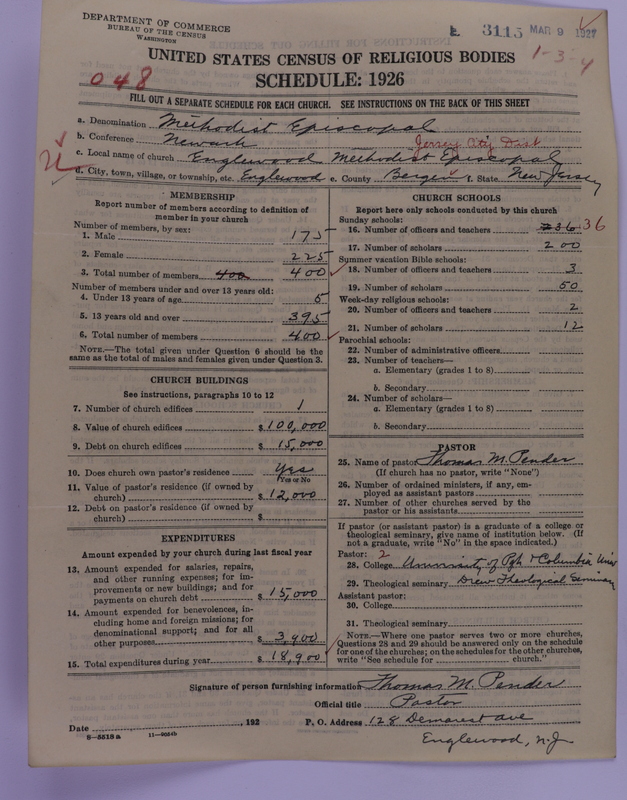 DEPARTMENT OF COMMERCE
BUREAU OF THE CENSUS
WASHINGTON
3115 MAR 9 1927
1-3-4
UNITED STATES CENSUS OF RELIGIOUS BODIES
048
SCHEDULE: 1926
FILL OUT A SEPARATE SCHEDULE FOR EACH CHURCH. SEE INSTRUCTIONS ON THE BACK OF THIS SHEET
a. Denomination Methodist Episcopal
b. Conference Newark Jersey City Dist
c. Local name of church Englewood Methodist Episcopal
d. City, town, village, or township, etc. Englewood e. County Bergen f. State New Jersey
MEMBERSHIP
Report number of members according to definition of
member in your church
Number of members, by sex:
1. Male 175
2. Female 225
3. Total number of members 400 400
Number of members under and over 13 years old:
4. Under 13 years of age 5
5. 13 years old and over 395
6. Total number of members 400
NOTE.—The total given under Question 6 should be the
same as the total of males and females given under Question 3.
CHURCH BUILDINGS
See instructions, paragraphs 10 to 12
7. Number of church edifices 1
8. Value of church edifices $100,000
9. Debt on church edifices $15,000
10. Does church own pastor's residence Yes
Yes or No
11. Value of pastor's residence (if owned by
church) $12,000
12. Debt on pastor's residence (if owned by
church) $
EXPENDITURES
Amount expended by your church during last fiscal year
13. Amount expended for salaries, repairs,
and other running expenses; for im-
provements or new buildings; and for
payments on church debt $15,000
14. Amount expended for benevolences, in-
cluding home and foreign missions; for
denominational support; and for all
other purposes $3,900
15. Total expenditures during year $18,900
CHURCH SCHOOLS
Report here only schools conducted by this church
Sunday schools:
16. Number of officers and teachers 36 36
17. Number of scholars 200
Summer vacation Bible schools:
18. Number of officers and teachers 3
19. Number of scholars 50
Week-day religious schools:
20. Number of officers and teachers 2
21. Number of scholars 12
Parochial schools:
22. Number of administrative officers
23. Number of teachers—
a. Elementary (grades 1 to 8)
b. Secondary
24. Number of scholars—
a. Elementary (grades 1 to 8)
b. Secondary
PASTOR
25. Name of pastor Thomas M. Pender
(If church has no pastor, write "None")
26. Number of ordained ministers, if any, em-
ployed as assistant pastors
27. Number of other churches served by the
pastor or his assistants
If pastor (or assistant pastor) is a graduate of a college or
theological seminary, give name of institution below. (If
not a graduate, write "No" in the space indicated.)
Pastor: 2
28. College University of Pgh & Columbia Univ
29. Theological seminary Drew Theological Seminary
Assistant pastor:
30. College
31. Theological seminary
NOTE.—Where one pastor serves two or more churches,
Questions 28 and 29 should be answered only on the schedule
for one of the churches; on the schedules for the other churches,
write "See schedule for church."
Signature of person furnishing information Thomas M. Pender
Official title Pastor
Date , 192 P. O. Address 128 Demarest ave
8-5518a 11-9054b
Englewood, N.J.